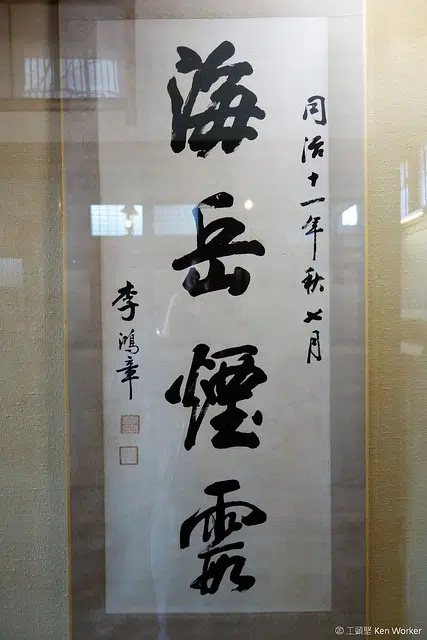 同治十一年秋七月
海岳煙霞
李鴻章
工頭堅 Ken Worker